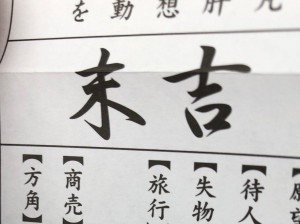 想
動
を
末吉
【待人
【失物
【旅行
【商売】
【方角】